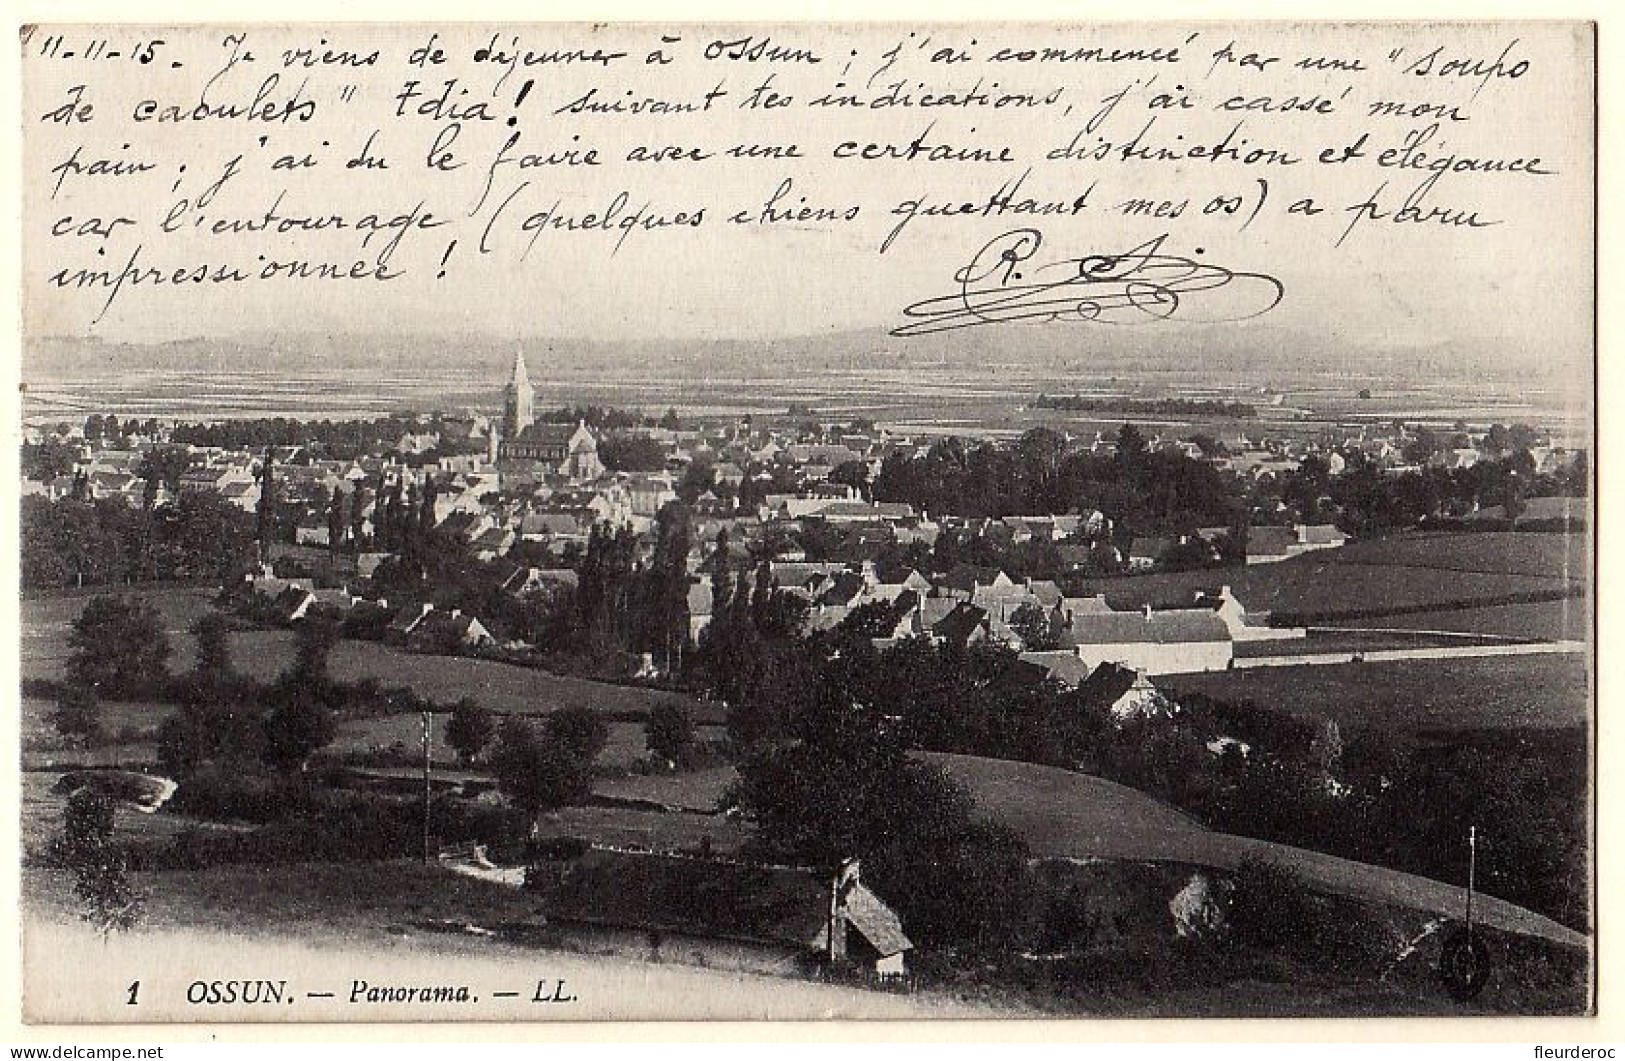 11-11-15. Je viens de déjeuner à Ossun ; j'ai commencé par une "soupo
de caoulets" Edia ! suivant tes indications, j'ai cassé mon
pain ; j'ai du le faire avec une certaine distinction et élégance
car l'entourage (quelques chiens guettant mes os) a paru
impressionnée !
R.
1 OSSUN. — Panorama. — LL.
fleurderoc
delcampe.net